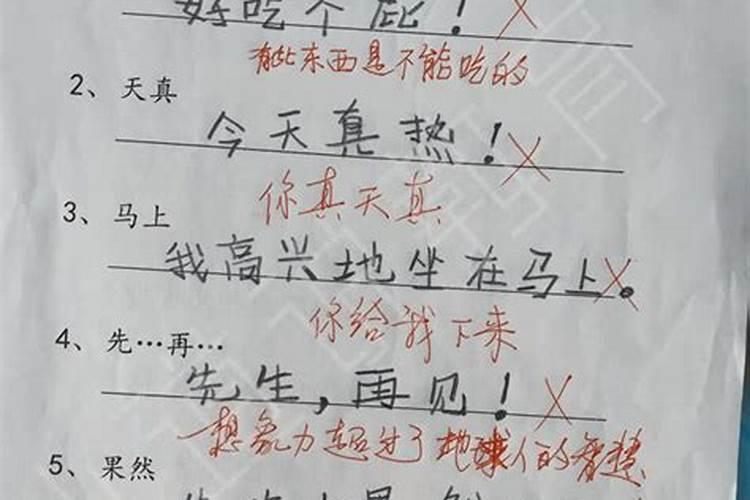 好吃个屁！
有些东西是不能吃的
2、天真
今天真热！
你真天真
3、马上
我高兴地坐在马上。
你给我下来
4、先…再…
先生，再见！
想象力超过了地球人的智慧
5、果然